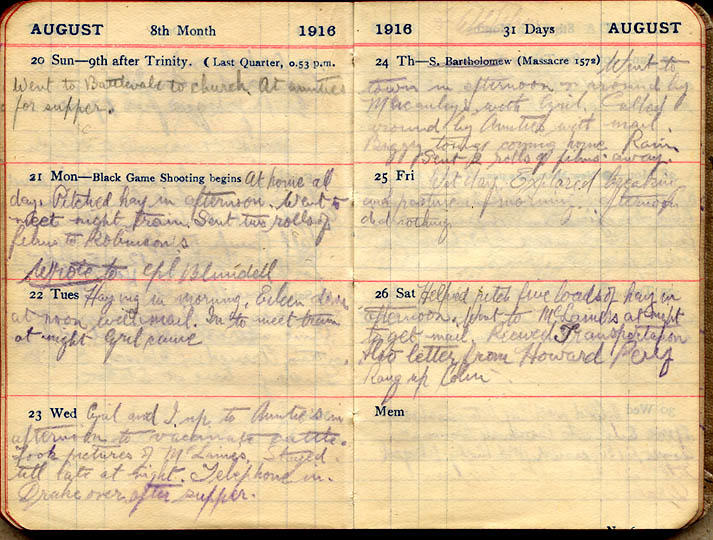 AUGUST 8th Month 1916
20 Sun—9th after Trinity. (Last Quarter, 0.53 p.m.
Went to Battlevale to church At aunties
for supper.
21 Mon—Black Game Shooting begins At home all
day. Pitched hay in afternoon. Went to
meet night train. Sent two rolls of
films to Robinson's
Wrote to Cpl Blundell
22 Tues Haying in morning. Eileen down
at noon with mail. In to meet train
at night Cyril came
23 Wed Cyril and I up to Auntie's in
afternoon to vaccinate cattle.
Took pictures of McLames, Stayed
till late at night. Telephone in.
Drake over after supper.
1916 31 Days AUGUST
24 Th—S. Bartholomew (Massacre 1572) Went to
town in afternoon & around by
Macauleys with Cyril. Called
around by Aunties with mail
coming home Rain
Sent 2 rolls of films away.
25 Fri Wet day. Explored breaking
and pasture morning. Afternoon
did nothing
26 Sat Helped pitch five loads of hay in
afternoon. Went to at night
to get mail. Transportation
Also letter from Howard
Rang up Colin
Mem